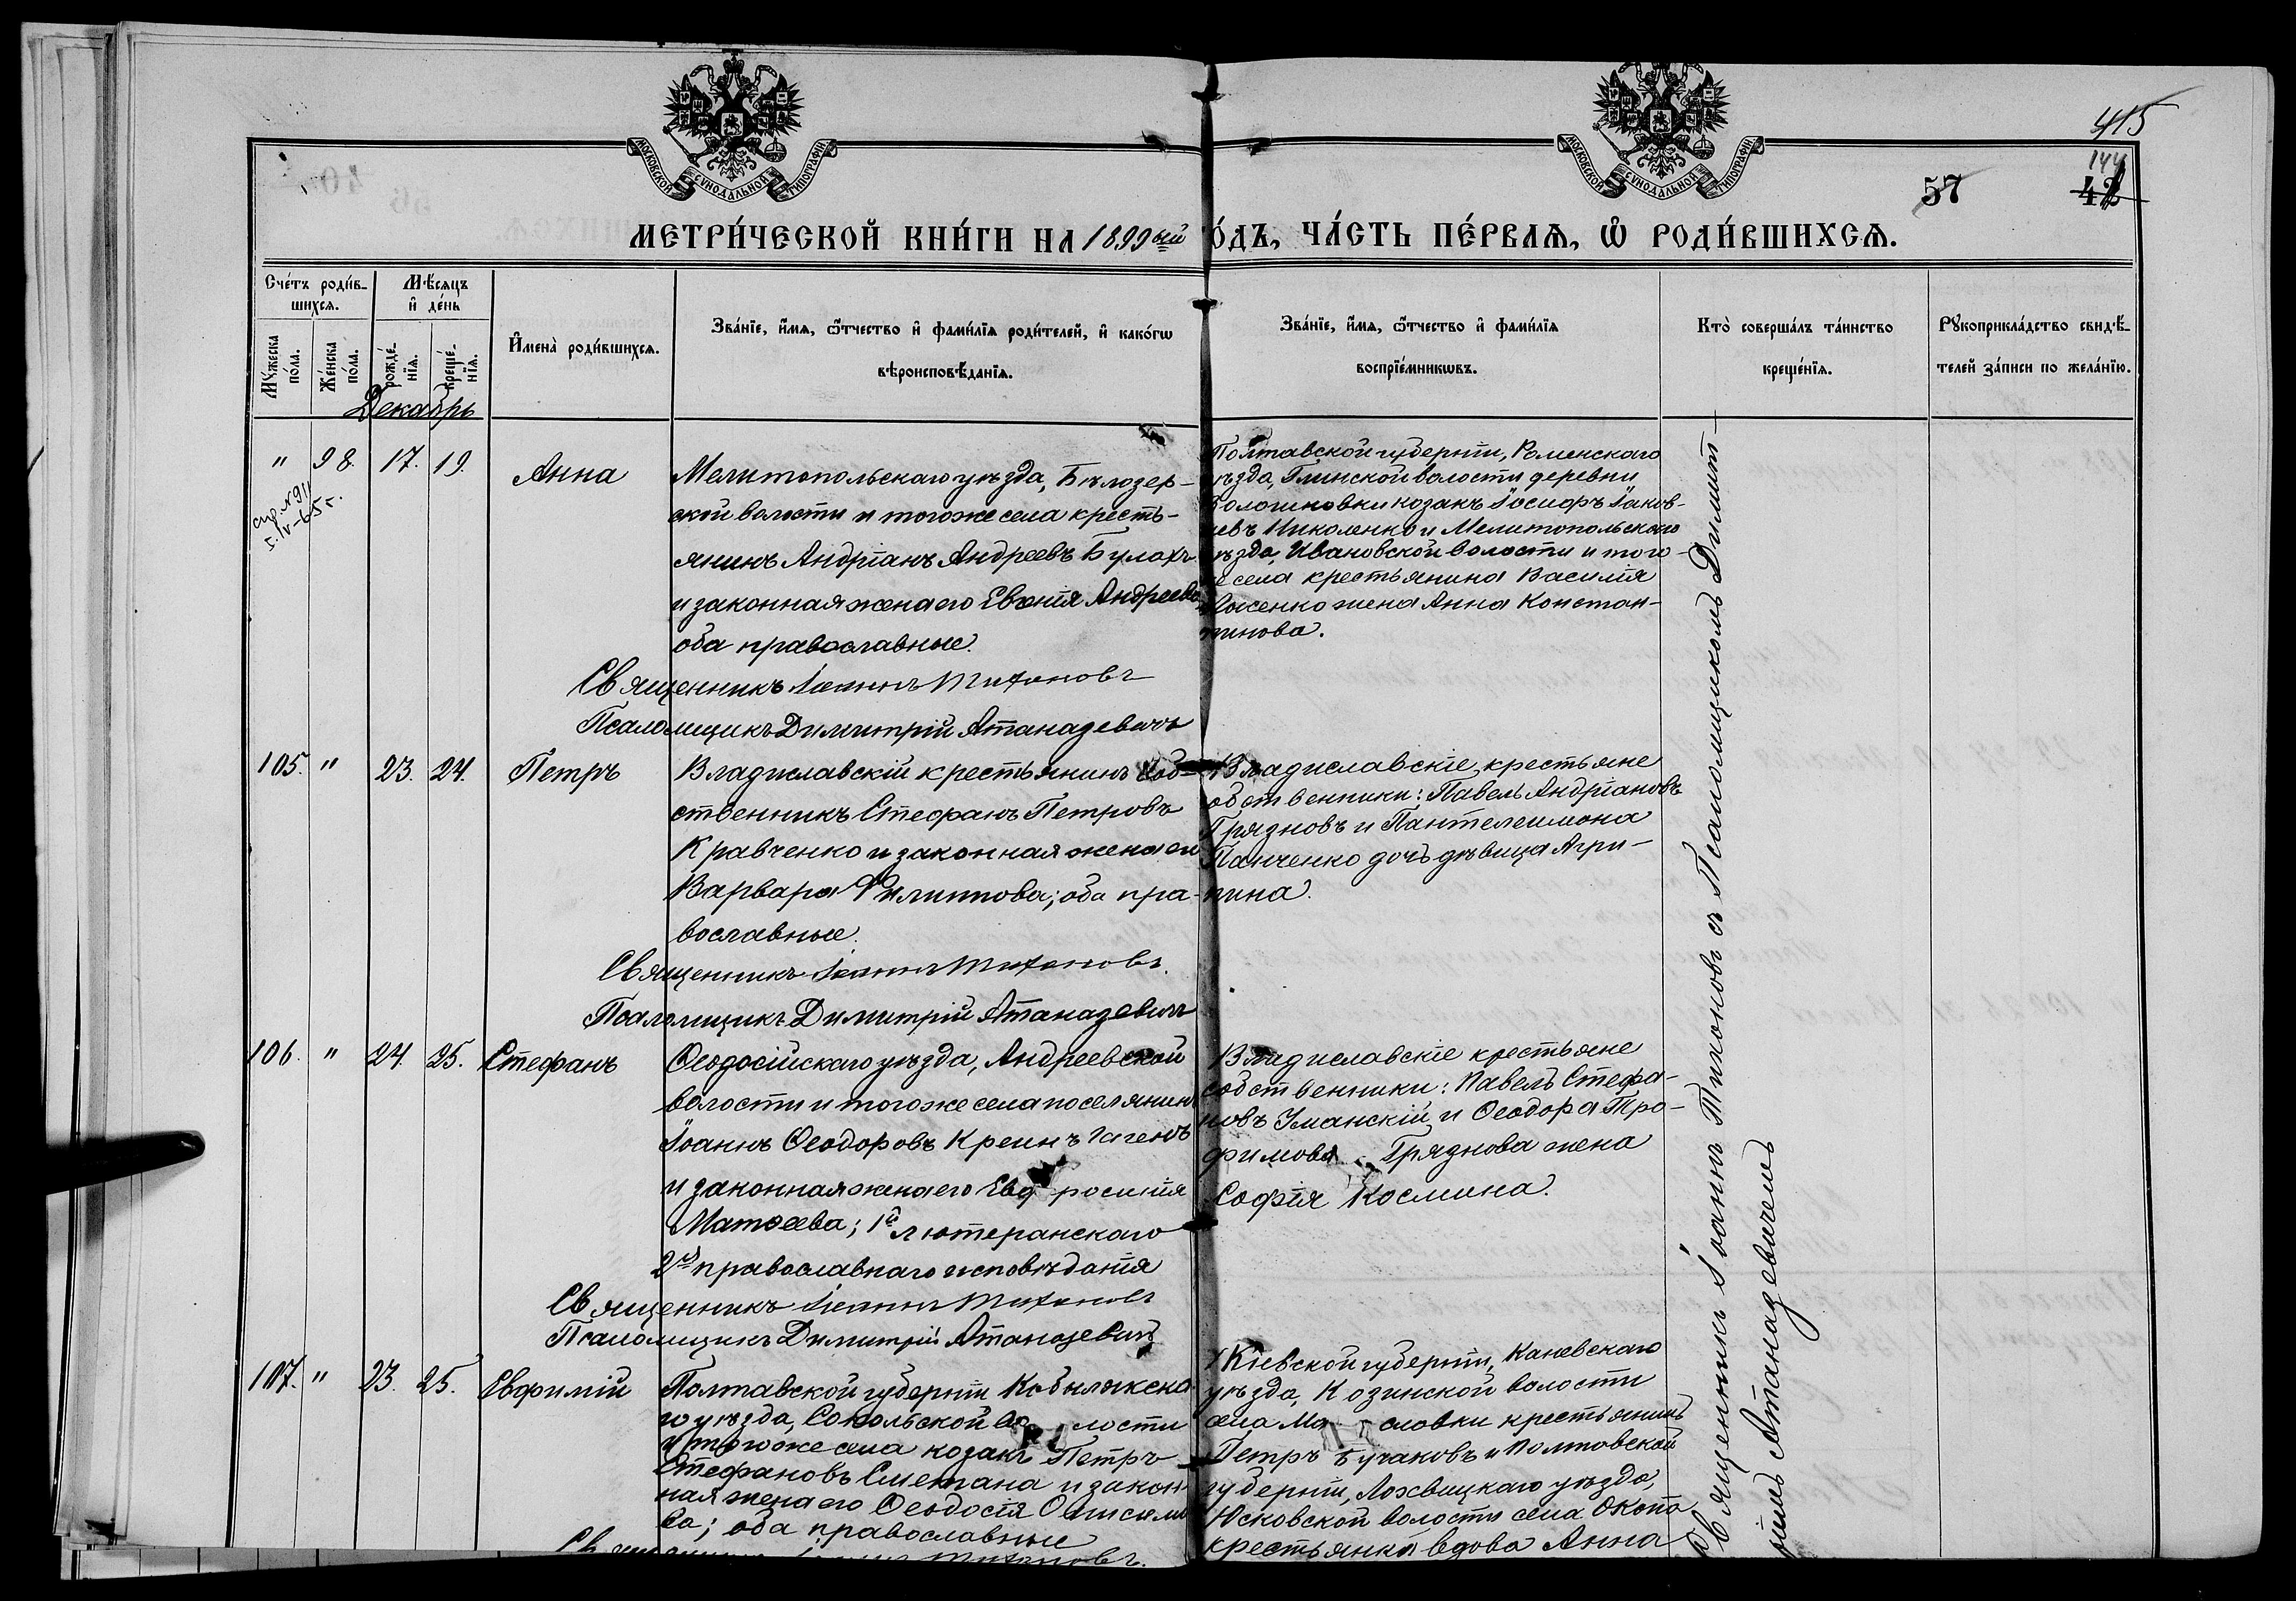 МОСКОВСКОЙ СѴНОДАЛЬНОЙ ТИПОГРАФІИ.
МОСКОВСКОЙ СѴНОДАЛЬНОЙ ТИПОГРАФІИ.
415
144
57
42
МЕТРИ́ЧЕСКОЙ КНИ́ГИ НА 1899ый
О́ДЪ, ЧА́СТЬ ПЕ́РВАѦ, Ѽ РОДИ́ВШИХСѦ.
Сче́тъ роди́в-
шихсѧ.
Му́жеска по́ла.
Же́нска по́ла.
Мѣ́сяцъ
и҆ де́нь
рожде́-
нїѧ.
креще́-
нїѧ.
И҆мена̀ роди́вшихсѧ.
Зва́нїе, и҆́мѧ, ѻ҆́тчество и҆ фами́лїѧ роди́телей, и҆ како́гѡ
вѣроисповѣ́данїѧ.
Зва́нїе, и҆́мѧ, ѻ҆́тчество и҆ фами́лїѧ
воспрїе́мникѡвъ.
Кто̀ соверша́лъ та́инство
креще́нїѧ.
Рꙋкоприкла́дство свидѣ́-
телей за́писи по жела́нїю.
Декабрь
" 98. 17. 19. Анна
Мелитопольскаго уѣзда, Бѣлозер-
ской волости и тогоже села кресть-
янинъ Андріанъ Андреевъ Булахъ
и законная жена его Евгенія Андреева
оба православные.
Священникъ Іоаннъ Тихоновъ
Псаломщикъ Димитрій Атаназевичъ
Полтавской губерніи, Роменскаго
уѣзда, Глинской волости деревни
козакъ Іосифъ Іаков-
левъ Николенко и Мелитопольскаго
уѣзда, Ивановской волости и того-
же села крестьянина Василія
жена Анна Констан-
тинова.
105. " 23. 24. Петръ
Владиславскій крестьянинъ соб-
ственникъ Стефанъ Петровъ
Кравченко и законная жена его
Варвара Филиппова; оба пра-
вославные.
Священникъ Іоаннъ Тихоновъ.
Псаломщикъ Димитрій Атаназевичъ
Владиславскіе крестьяне
собственники: Павелъ Андріановъ
Грязновъ и Пантелеимона
Панченко дочь дѣвица Агри-
пина.
106. " 24. 25. Стефанъ
Ѳеодосійскаго уѣзда, Андреевской
волости и тогоже села поселянинъ
Іоаннъ Ѳеодоровъ
и законная жена его Евфросинія
Матѳеева; 1й лютеранскаго
2я православнаго исповѣданія
Священникъ Іоаннъ Тихоновъ
Псаломщикъ Димитрій Атаназевичъ
Владиславскіе крестьяне
собственники: Павелъ Стефа-
новъ Уманскій и Ѳеодора Тро-
фимова Грязнова жена
Софія Космина.
107. " 23. 25. Евфимій
Полтавской губерніи Кобылякска-
го уѣзда, Сокольской волости
и тогоже села козакъ Петръ
Стефановъ Сметана и закон-
ная жена его Ѳеодосія Онисимо
ва; оба православные
Священникъ Іоаннъ Тихоновъ.
Кіевской губерніи, Каневскаго
уѣзда, Козинской волости
села крестьянинъ
Петръ Бучаковъ и Полтавской
губерніи, Лохвицкаго уѣзда,
Юсковской волости села
крестьянка вдова Анна
Священникъ Іоаннъ Тихоновъ съ Псаломщикомъ Димит-
ріемъ Атаназевичемъ